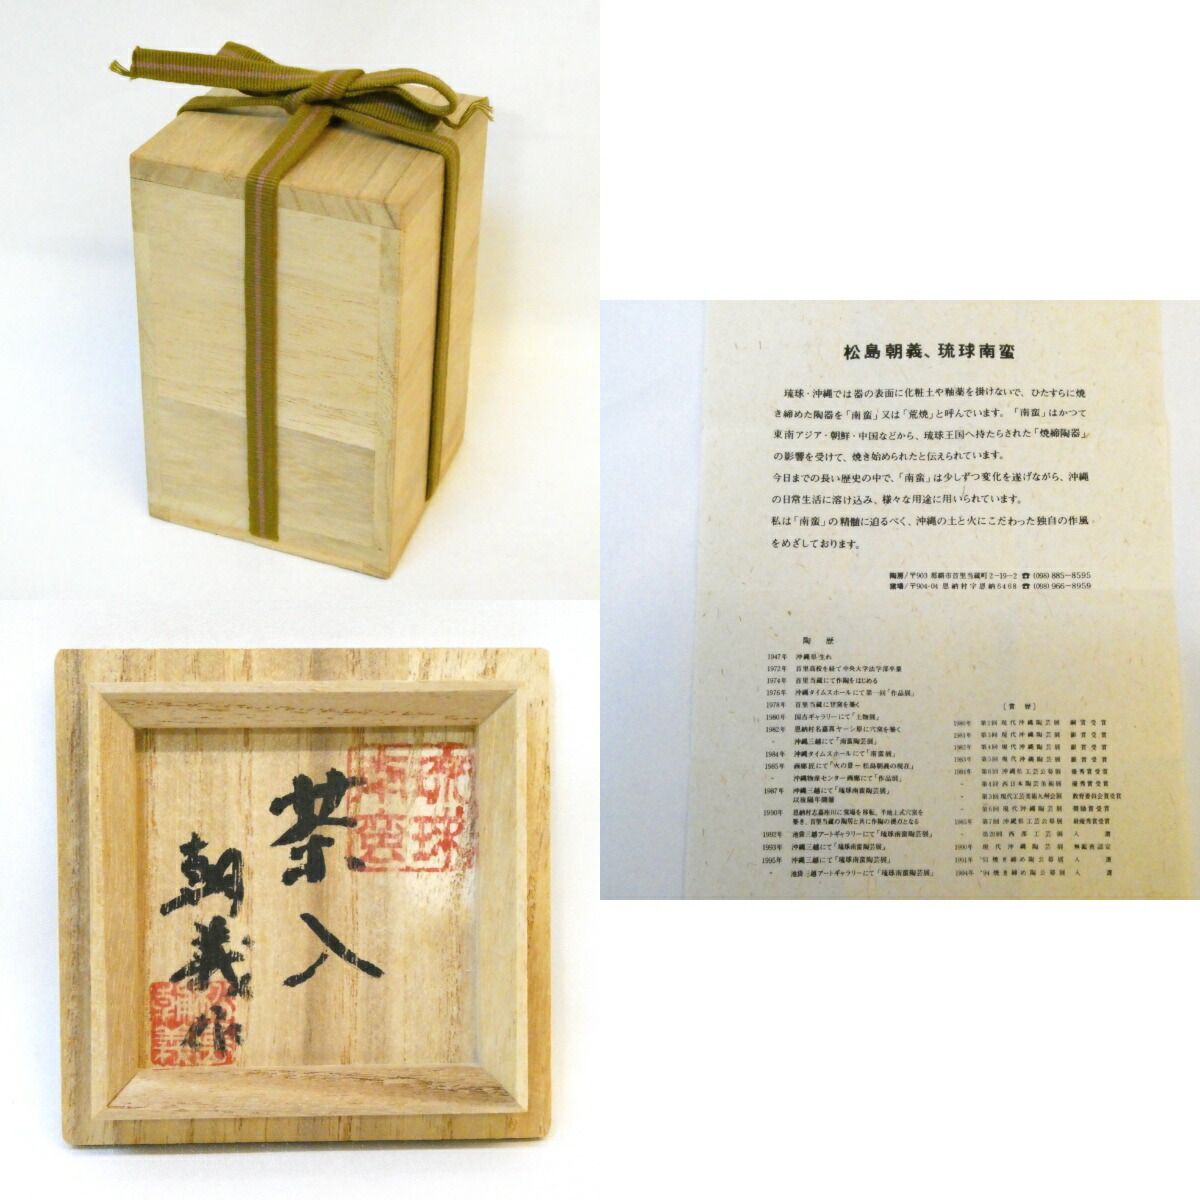 茶入
朝義作
琉球
南蛮
松島朝義、琉球南蛮
琉球・沖縄では器の表面に化粧土や釉薬を掛けないで、ひたすらに焼
き締めた陶器を「南蛮」又は「荒焼」と呼んでいます。「南蛮」はかつて
東南アジア・朝鮮・中国などから、琉球王国へ持たらされた「焼締陶器」
の影響を受けて、焼き始められたと伝えられています。
今日までの長い歴史の中で、「南蛮」は少しずつ変化を遂げながら、沖縄
の日常生活に溶け込み、様々な用途に用いられています。
私は「南蛮」の精髄に迫るべく、沖縄の土と火にこだわった独自の作風
をめざしております。
陶房/〒903 那覇市首里当蔵町2-19-2 ☎(098)885-8595
窯場/〒904-04 恩納村字恩納6468 ☎(098)966-8959
陶歴
1947年 沖縄県生れ
1972年 首里高校を経て中央大学法学部卒業
1974年 首里当蔵にて作陶をはじめる
1976年 沖縄タイムスホールにて第一回「作品展」
1978年 首里当蔵に窖窯を築く
1980年 国吉ギャラリーにて「土物展」
1982年 恩納村名嘉真ヤーシ原に穴窯を築く
〃 沖縄三越にて「南蛮陶芸展」
1984年 沖縄タイムスホールにて「南蛮展」
1985年 画廊匠にて「火の景ー松島朝義の現在」
〃 沖縄物産センター画廊にて「作品展」
1987年 沖縄三越にて「琉球南蛮陶芸展」
以後隔年開催
1990年 恩納村志嘉座川に窯場を移転、半地上式穴窯を
築き、首里当蔵の陶房と共に作陶の拠点となる
1992年 池袋三越アートギャラリーにて「琉球南蛮陶芸展」
1993年 沖縄三越にて「琉球南蛮陶芸展」
1995年 沖縄三越にて「琉球南蛮陶芸展」
〃 池袋三越アートギャラリーにて「琉球南蛮陶芸展」
〔賞歴〕
1980年 第2回現代沖縄陶芸展 銅賞受賞
1981年 第3回現代沖縄陶芸展 銀賞受賞
1982年 第4回現代沖縄陶芸展 銀賞受賞
1983年 第5回現代沖縄陶芸展 銀賞受賞
1984年 第6回沖縄県工芸公募展 優秀賞受賞
〃 第4回西日本陶芸美術展 優秀賞受賞
〃 第3回現代工芸美術九州会展 教育委員会賞受賞
〃 第6回現代沖縄陶芸展 奨励賞受賞
1985年 第7回沖縄県工芸公募展 最優秀賞受賞
〃 第20回西部工芸展 入選
1990年 現代沖縄陶芸展 無鑑査認定
1991年 '91焼き締め陶公募展 入選
1994年 '94焼き締め陶公募展 入選